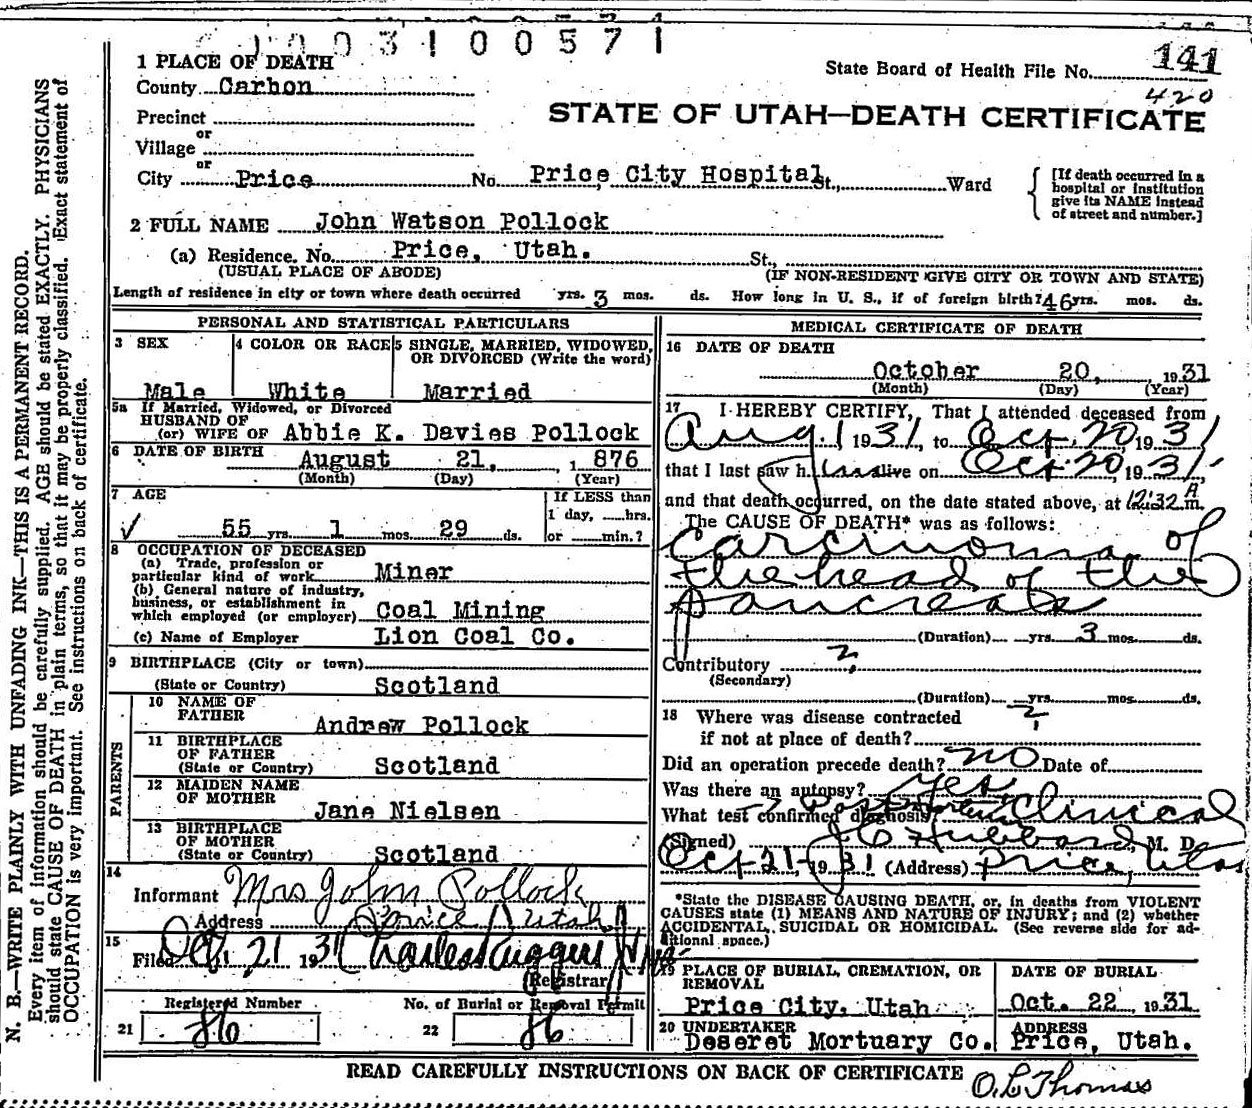 003100571
1 PLACE OF DEATH
State Board of Health File No. 141
County Carbon
420
STATE OF UTAH—DEATH CERTIFICATE
Precinct
or
Village
or
City Price No. Price City Hospital St., Ward
[If death occurred in a hospital or institution give its NAME instead of street and number.]
2 FULL NAME John Watson Pollock
(a) Residence. No. Price, Utah. St.,
(USUAL PLACE OF ABODE) (IF NON-RESIDENT GIVE CITY OR TOWN AND STATE)
Length of residence in city or town where death occurred yrs. 3 mos. ds. How long in U. S., if of foreign birth? 46 yrs. mos. ds.
PERSONAL AND STATISTICAL PARTICULARS
3 SEX
Male
4 COLOR OR RACE
White
5 SINGLE, MARRIED, WIDOWED, OR DIVORCED (Write the word)
Married
5a If Married, Widowed, or Divorced
HUSBAND OF
(or) WIFE OF Abbie K. Davies Pollock
6 DATE OF BIRTH August 21, 1876
(Month) (Day) (Year)
7 AGE
55 yrs. 1 mos. 29 ds.
If LESS than
1 day, hrs.
or min.?
8 OCCUPATION OF DECEASED
(a) Trade, profession or
particular kind of work Miner
(b) General nature of industry,
business, or establishment in
which employed (or employer) Coal Mining
(c) Name of Employer Lion Coal Co.
9 BIRTHPLACE (City or town)
(State or Country) Scotland
PARENTS
10 NAME OF
FATHER Andrew Pollock
11 BIRTHPLACE
OF FATHER
(State or Country) Scotland
12 MAIDEN NAME
OF MOTHER Jane Nielsen
13 BIRTHPLACE
OF MOTHER
(State or Country) Scotland
14
Informant Mrs John Pollock
Address Price, Utah
15
Filed Oct 21 1931 Charles Ruggeri
Registrar
Registered Number
21 86
No. of Burial or Removal Permit
22 86
MEDICAL CERTIFICATE OF DEATH
16 DATE OF DEATH
October 20, 1931
(Month) (Day) (Year)
17 I HEREBY CERTIFY, That I attended deceased from
Aug. 1 1931, to Oct. 20 1931
that I last saw him alive on Oct. 20, 1931.
and that death occurred, on the date stated above, at 12:32 A m.
The CAUSE OF DEATH* was as follows:
Carcinoma of
the head of the
pancreate
(Duration) yrs. 3 mos. ds.
Contributory ?
(Secondary)
(Duration) yrs. mos. ds.
18 Where was disease contracted ?
if not at place of death?
Did an operation precede death? no Date of
Was there an autopsy? yes
What test confirmed diagnosis? Clinical
(Signed) Hubbard, M. D.
Oct 21, 1931 (Address) Price, Utah
*State the DISEASE CAUSING DEATH, or, in deaths from VIOLENT
CAUSES state (1) MEANS AND NATURE OF INJURY; and (2) whether
ACCIDENTAL, SUICIDAL OR HOMICIDAL. (See reverse side for ad-
ditional space.)
19 PLACE OF BURIAL, CREMATION, OR
REMOVAL
Price City, Utah
DATE OF BURIAL
Oct. 22 1931
20 UNDERTAKER
Deseret Mortuary Co.
ADDRESS
Price, Utah.
READ CAREFULLY INSTRUCTIONS ON BACK OF CERTIFICATE
O. L. Thomas
N. B.—WRITE PLAINLY WITH UNFADING INK—THIS IS A PERMANENT RECORD.
Every item of information should be carefully supplied. AGE should be stated EXACTLY. PHYSICIANS
should state CAUSE OF DEATH in plain terms, so that it may be properly classified. Exact statement of
OCCUPATION is very important. See instructions on back of certificate.